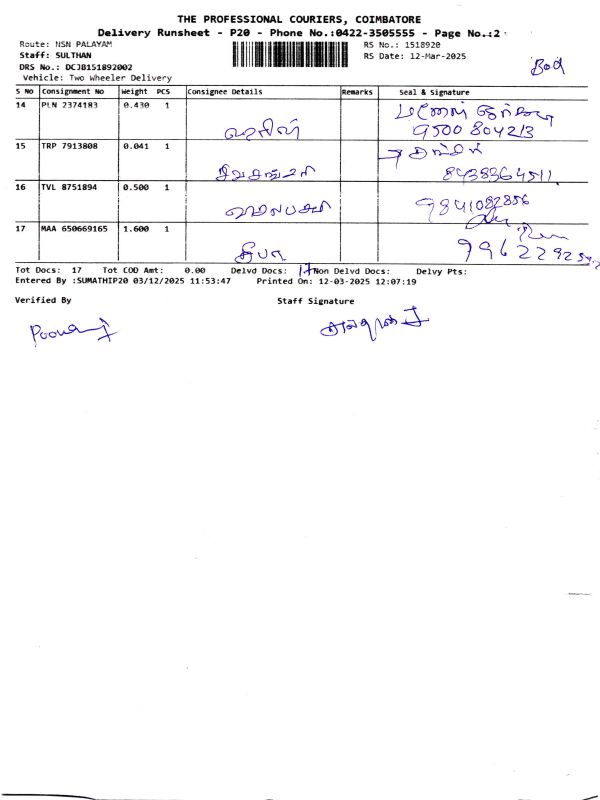 THE PROFESSIONAL COURIERS, COIMBATORE
Delivery Runsheet - P20 - Phone No.:0422-3505555 - Page No.:2
Route: NSN PALAYAM
RS No.: 1518920
Staff: SULTHAN
RS Date: 12-Mar-2025
DRS No.: DCJB151892002
Vehicle: Two Wheeler Delivery
S No Consignment No Weight PCS Consignee Details Remarks Seal & signature
14 PLN 2374183 0.430 1
9500804213
15 TRP 7913808 0.041 1
8438364511
16 TVL 8751894 0.500 1
9841082856
17 MAA 650669165 1.600 1 தீபா
Tot Docs: 17 Tot COD Amt: 0.00 Delvd Docs: 17 Non Delvd Docs: Delvy Pts:
Entered By :SUMATHIP20 03/12/2025 11:53:47 Printed On: 12-03-2025 12:07:19
Verified By Staff Signature